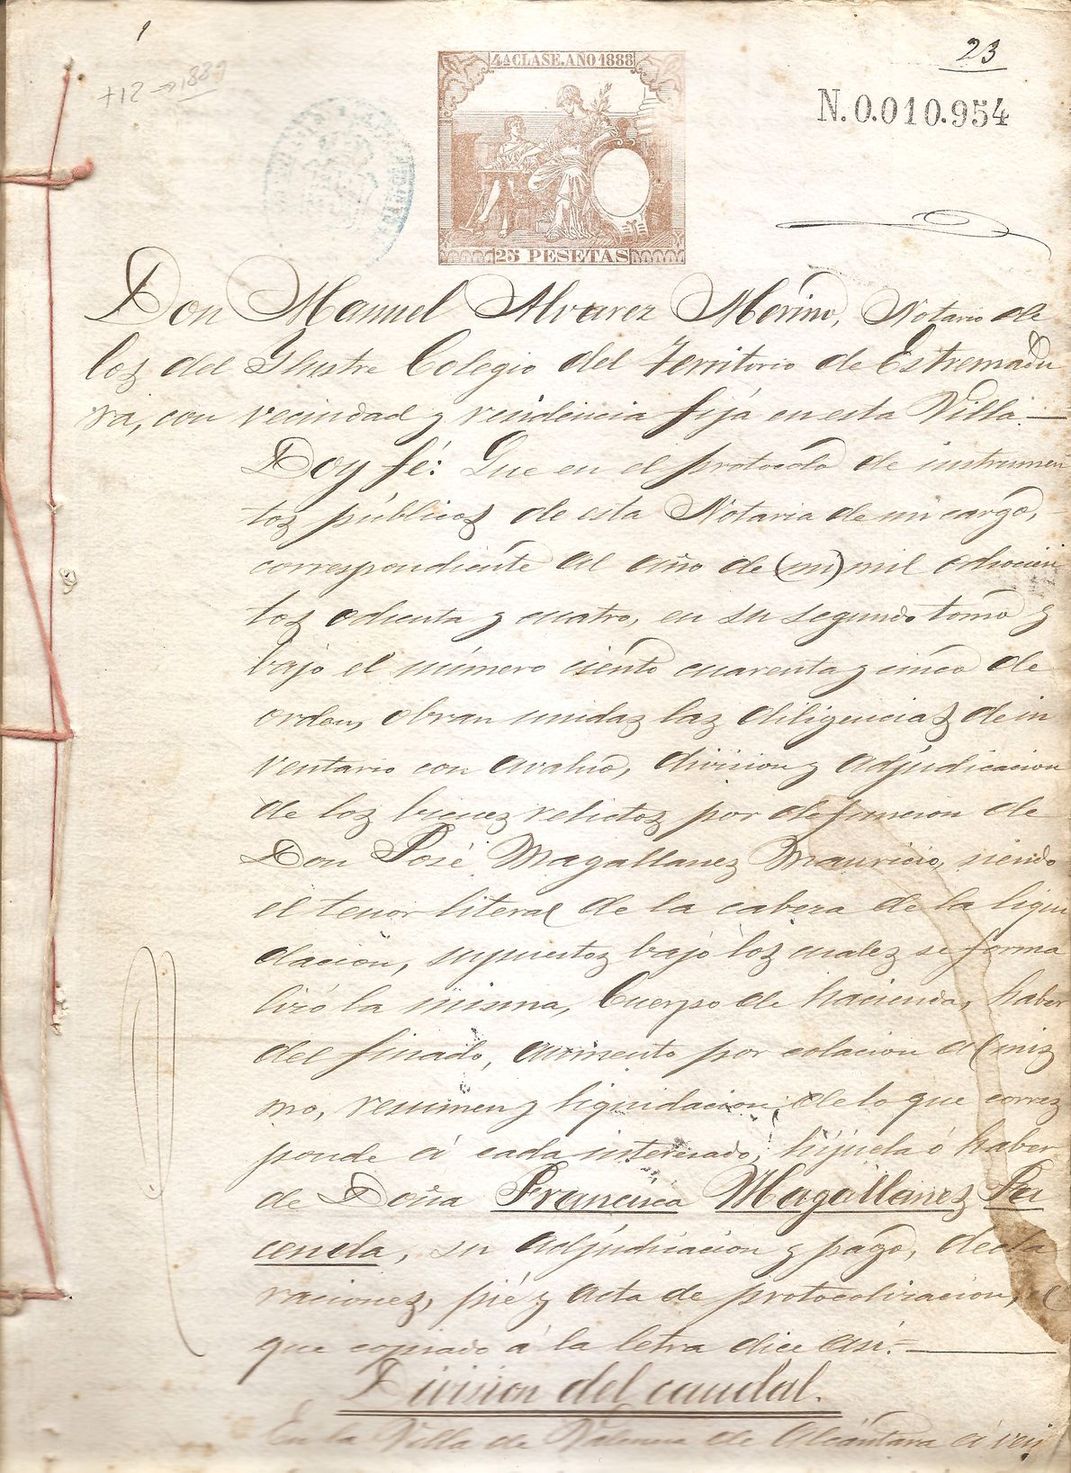 9
23
+12 → 1889
4ª CLASE. AÑO 1888
N. 0.010.954
25 PESETAS
Don Manuel Alvarez Merino, Notario de
los del Ilustre Colegio del Territorio de Estremadu
ra, con vecindad y residencia fija en esta Villa.—
Doy fé: Que en el protocolo de instrumen
tos públicos de esta Notaria de mi cargo,
correspondiente al año de (mi) mil ochocien
tos ochenta y cuatro, en su segundo tomo y
bajo el número ciento cuarenta y cinco de
orden, obran unidas las diligencias de in
ventario con avaluo, division y adjudicacion
de los bienes relictos por defuncion de
Don José Magallanes Mauricio, siendo
el tenor literal de la cabeza de la liqui
dacion, supuestos bajo los cuales se forma
lizó la misma, Cuerpo de hacienda, haber
del finado, aumento por colacion al mis
mo, resumen y liquidacion de lo que corres
ponde á cada interesado; hijuela ó haber
de Doña Francisca Magallanes
su adjudicacion y pago, decla
raciones, pié y acta de protocolizacion, el
que copiado á la letra dice asi:—
Division del caudal.
En la Villa de Valencia de Alcántara á vein